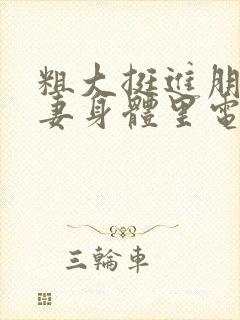 粗大挺進朋
妻身體里電
三輪車